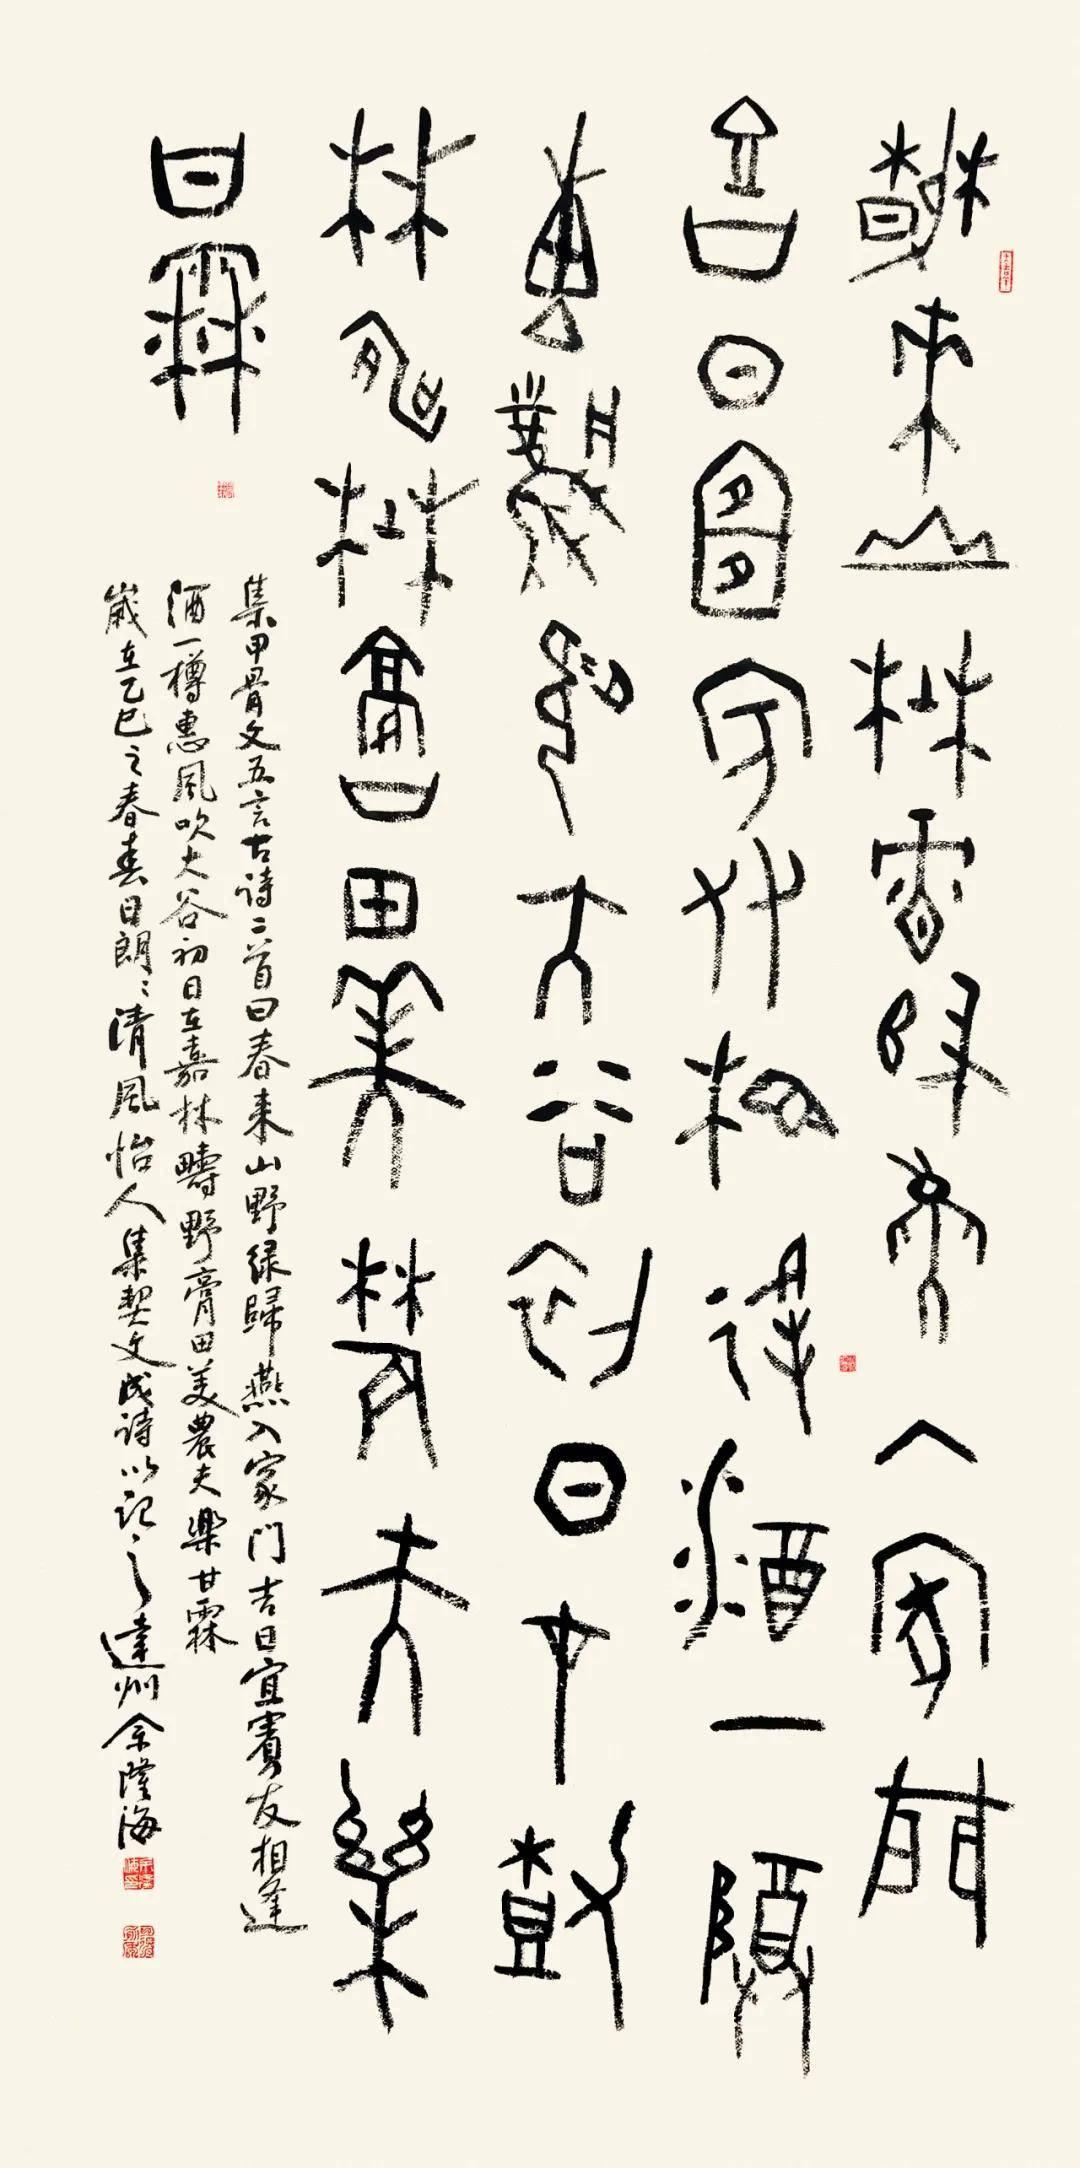 春來山野綠歸燕入家門
吉日宜賓友相逢酒一樽
惠風吹大谷初日在嘉
林疇野膏田美農夫樂
甘霖
集甲骨文五言古詩二首曰春来山野緑歸燕入家門吉日宜賓友相逢
酒一樽惠風吹大谷初日在嘉林疇野膏田美農夫樂甘霖
歲在乙巳之春春日朗〻清風怡人集契文成詩以記之達州余隆海